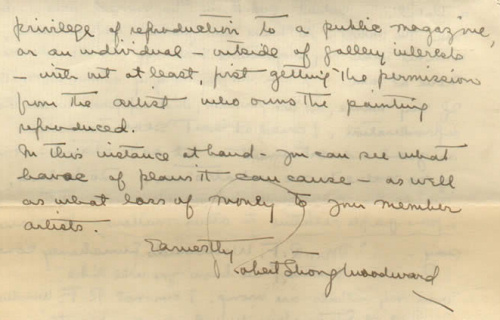 privilege of reproduction to a public magazine,
or an individual - outside of gallery interests
- with out at least, first getting the permission
from the artist who owns the painting
reproduced.
In this instance at hand - you can see what
havoc of plans it can cause - as well
as what loss of money to your member
artists.
Earnestly
Robert Strong Woodward